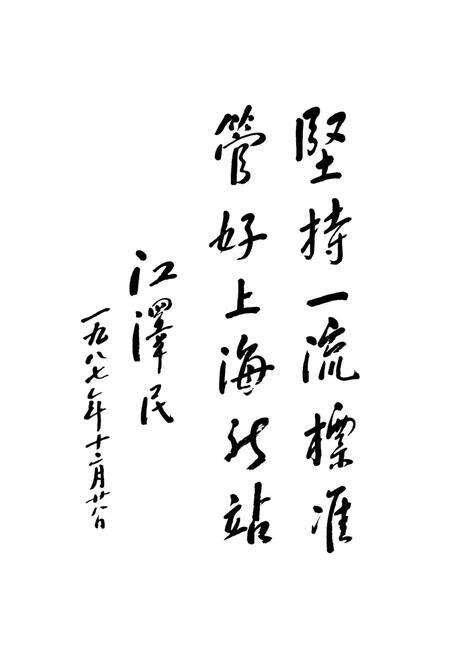 堅持一流標准
管好上海新站
江澤民
一九八七年十二月廿八日